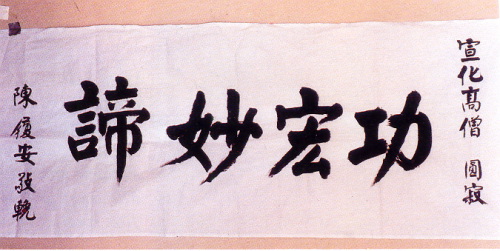 宣化高僧 圓寂
功宏妙諦
陳復安敬輓